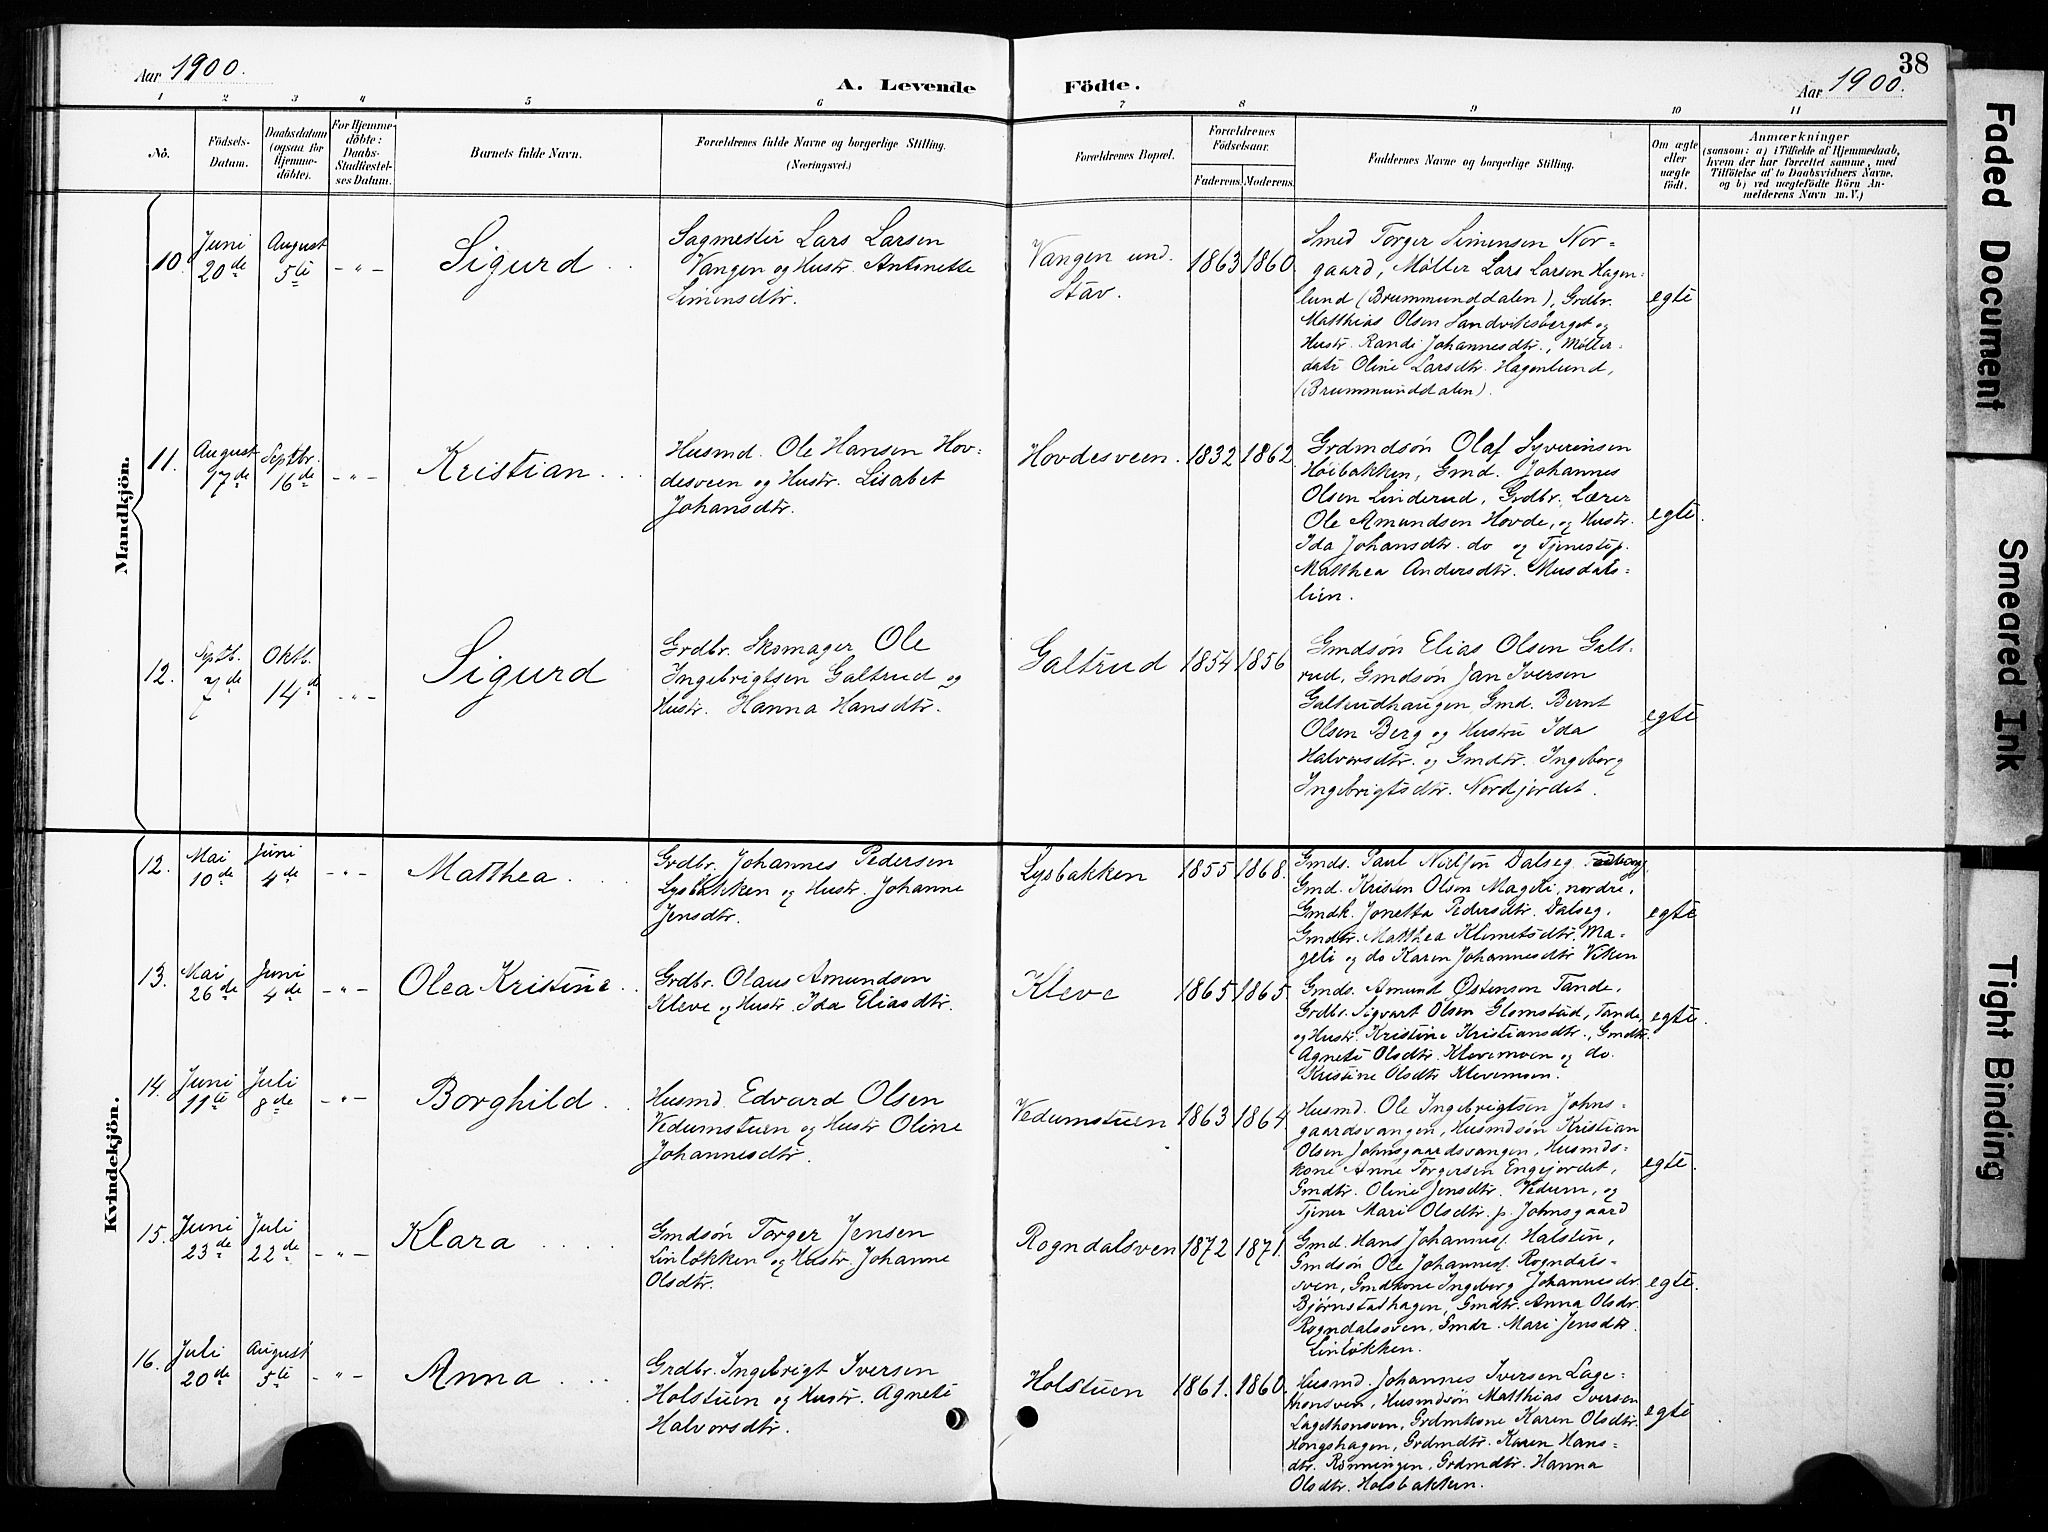 38
Aar 1900.
A. Levende Födte.
Aar 1900.
1 2 3 4 5 6 7 8 9 10 11
No.
Födsels-Datum.
Daabsdatum (ogsaa for Hjemme-döbte).
For Hjemme-döbte: Daabs-Stadfæstel-ses Datum.
Barnets fulde Navn.
Forældrenes fulde Navne og borgerlige Stilling.
(Næringsvei.)
Forældrenes Bopæl.
Forældrenes Födselsaar.
Faderens. Moderens.
Faddernes Navne og borgerlige Stilling.
Om ægte eller uægte födt.
Anmærkninger
(saasom: a) i Tilfælde af Hjemmedaab,
hvem der har forrettet samme, med
Tilföielse af to Daabsvidners Navne,
og b) ved uægtefödte Börn An-
melderens Navn m.V.)
Mandkjön.
10. Juni 20de
August 5te
- " -
Sigurd
Sagmester Lars Larsen
Vangen og Hustr. Antonette
Simensdtr.
Vangen und.
Stav.
1863 1860.
Smed Torger Simensen Nor-
gaard, Møller Lars Larsen Hagen-
lund (Brummunddalen), Grdbr.
Matthias Olsen Sandviksberget og
Hustr. Randi Johannesdtr., Møller-
datr Oline Larsdtr. Hagenlund,
(Brummunddalen).
egte
11. August 17de
Septbr. 16de
- " -
Kristian
Husmd. Ole Hansen Hov-
desveen og Hustr. Lisabet
Johansdtr.
Hovdesveen.
1832 1862.
Grdmdsøn Olaf Syverinsen
Høibakken, Gmd. Johannes
Olsen Linderud, Grdbr. Lærer
Ole Amundsen Hovde, og Hustr.
Ida Johansdtr. do og Tjenestep.
Matthea Andersdtr. Musdals-
lien.
egte.
12. Septb. 7de
Oktb. 14de
- " -
Sigurd
Grdbr. Skomager Ole
Ingebrigtsen Galtrud og
Hustr. Hanna Hansdtr.
Galtrud
1854 1856
Gmdsøn Elias Olsen Galt-
rud, Gmdsøn Jan Iversen
Galtrudhaugen, Gmd. Bernt
Olsen Berg og Hustru Ida
Halvorsdtr. og Gmdtr. Ingeborg
Ingebrigtsdtr. Nordjordet.
egte
Kvindekjön.
12. Mai 10de
Juni 4de
- " -
Matthea
Grdbr. Johannes Pedersen
Lysbakken og Hustr. Johanne
Jensdtr.
Lysbakken
1855 1868.
Gmds. Paul Dalseg,
Gmd. Kristen Olsen Mageli, nordre,
Gmdk. Jonetta Pedersdtr. Dalseg,
Gmdtr. Matthea Klemetsdtr. Ma-
geli og do Karen Johannesdtr Viken
egte
13. Mai 26de
Juni 4de
- " -
Olea Kristine
Grdbr. Olaus Amundsen
Kleve og Hustr. Ida Eliasdtr.
Kleve
1865 1865.
Gmds. Amund Østensen Tande,
Grdbr. Sigvart Olsen Glomstad, Tande,
og Hustr. Kristine Kristiansdtr., Gmdtr.
Agnete Olsdtr. Klevemoen og do.
Kristine Olsdtr Klevemoen.
egte.
14. Juni 11te
Juli 8de
- " -
Borghild
Husmd. Edvard Olsen
Vedumstuen og Hustr Oline
Johannesdtr.
Vedumstuen
1863 1864.
Husmd. Ole Ingebrigtsen Johns-
gaardsvangen, Husmdsøn Kristian
Olsen Johnsgaardsvangen, Husmds-
kone Anne Torgersen Engejordet,
Gmdtr. Oline Jensdtr. Vedum, og
Tjener Mari Olsdtr. p. Johnsgaard
egte.
15. Juni 23de
Juli 22de
- " -
Klara
Gmdsøn Torger Jensen
Linløkken og Hustr. Johanne
Olsdtr.
Rogndalsven
1872 1871.
Gmd. Hans Johannes. Halsten,
Gmdsøn Ole Johannes. Rogndals-
sven, Gmdkone Ingeborg Johannesdr.
Bjørnstadhagen, Gmdtr. Anna Olsdr.
Rogndalssven, Gmdr. Mari Jensdtr.
Linløkken.
egte.
16. Juli 20de
August 5te
- " -
Anna
Grdbr. Ingebrigt Iversen
Holstuen og Hustr. Agnete
Halvorsdtr.
Holstuen
1861. 1860.
Husmd. Johannes Iversen Lage-
thonsven, Husmdsøn Matthias Iversen
Lagethonsven, Grdmkone Karen Olsdtr.
Hongshagen, Grdmdtr. Karen Hans-
dtr. Rønningen, Grdmdtr. Hanna
Olsdtr. Holsbakken.
egte
Faded Document
Smeared Ink
Tight Binding